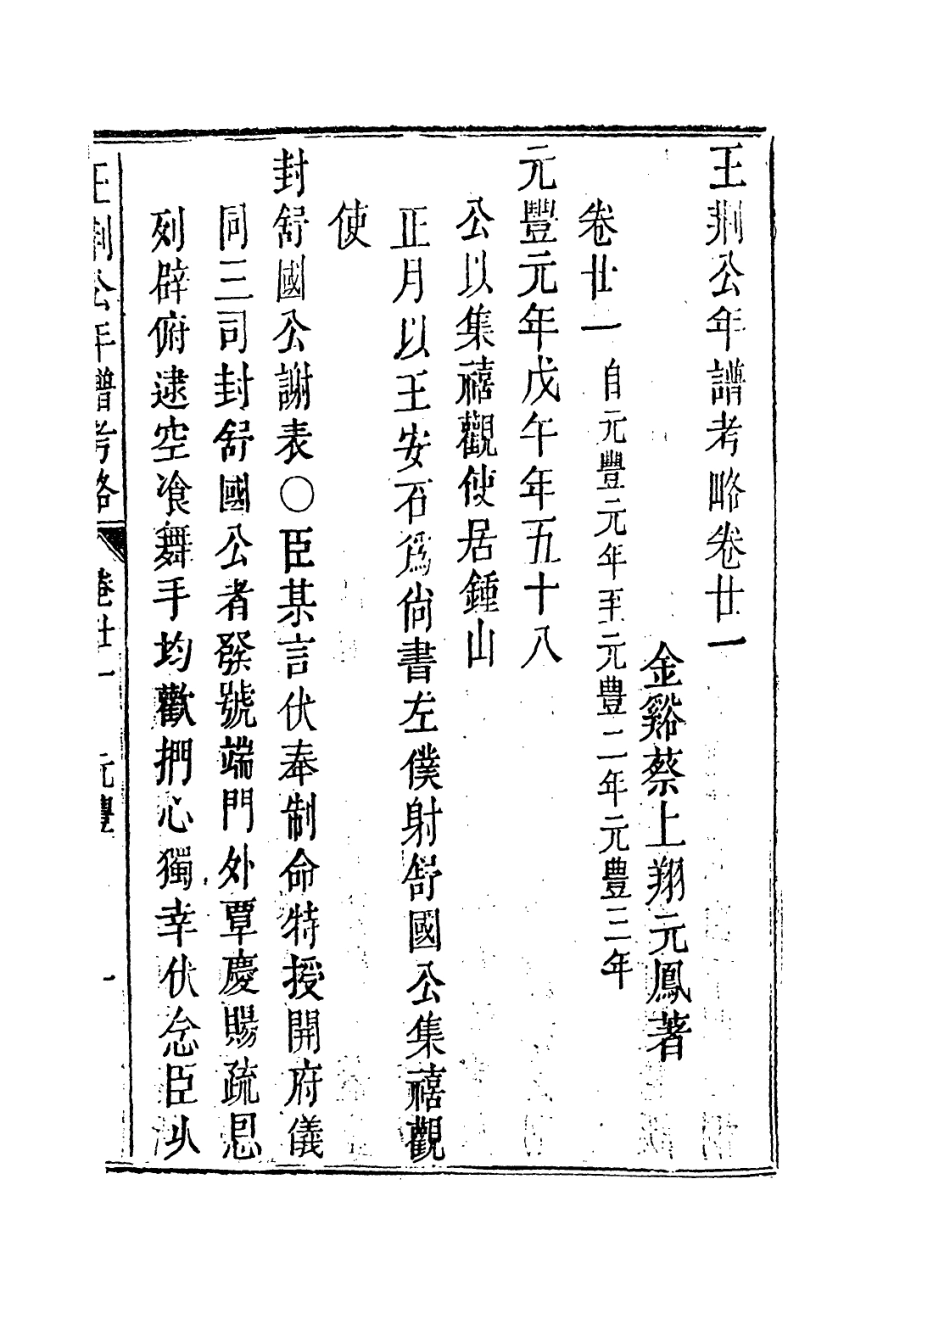 王荆公年譜考略卷廿一
金谿蔡上翔元鳳著
卷廿一 自元豐元年至元豐二年元豐三年
元豐元年戊午年五十八
公以集禧觀使居鍾山
正月以王安石爲尙書左僕射舒國公集禧觀
使
封舒國公謝表○臣某言伏奉制命特授開府儀
同三司封舒國公者發號端門外覃慶賜疏恩
列辟俯逮空飡舞手均歡捫心獨幸伏念臣以
王荆公年譜考略 卷廿一 元豐 一